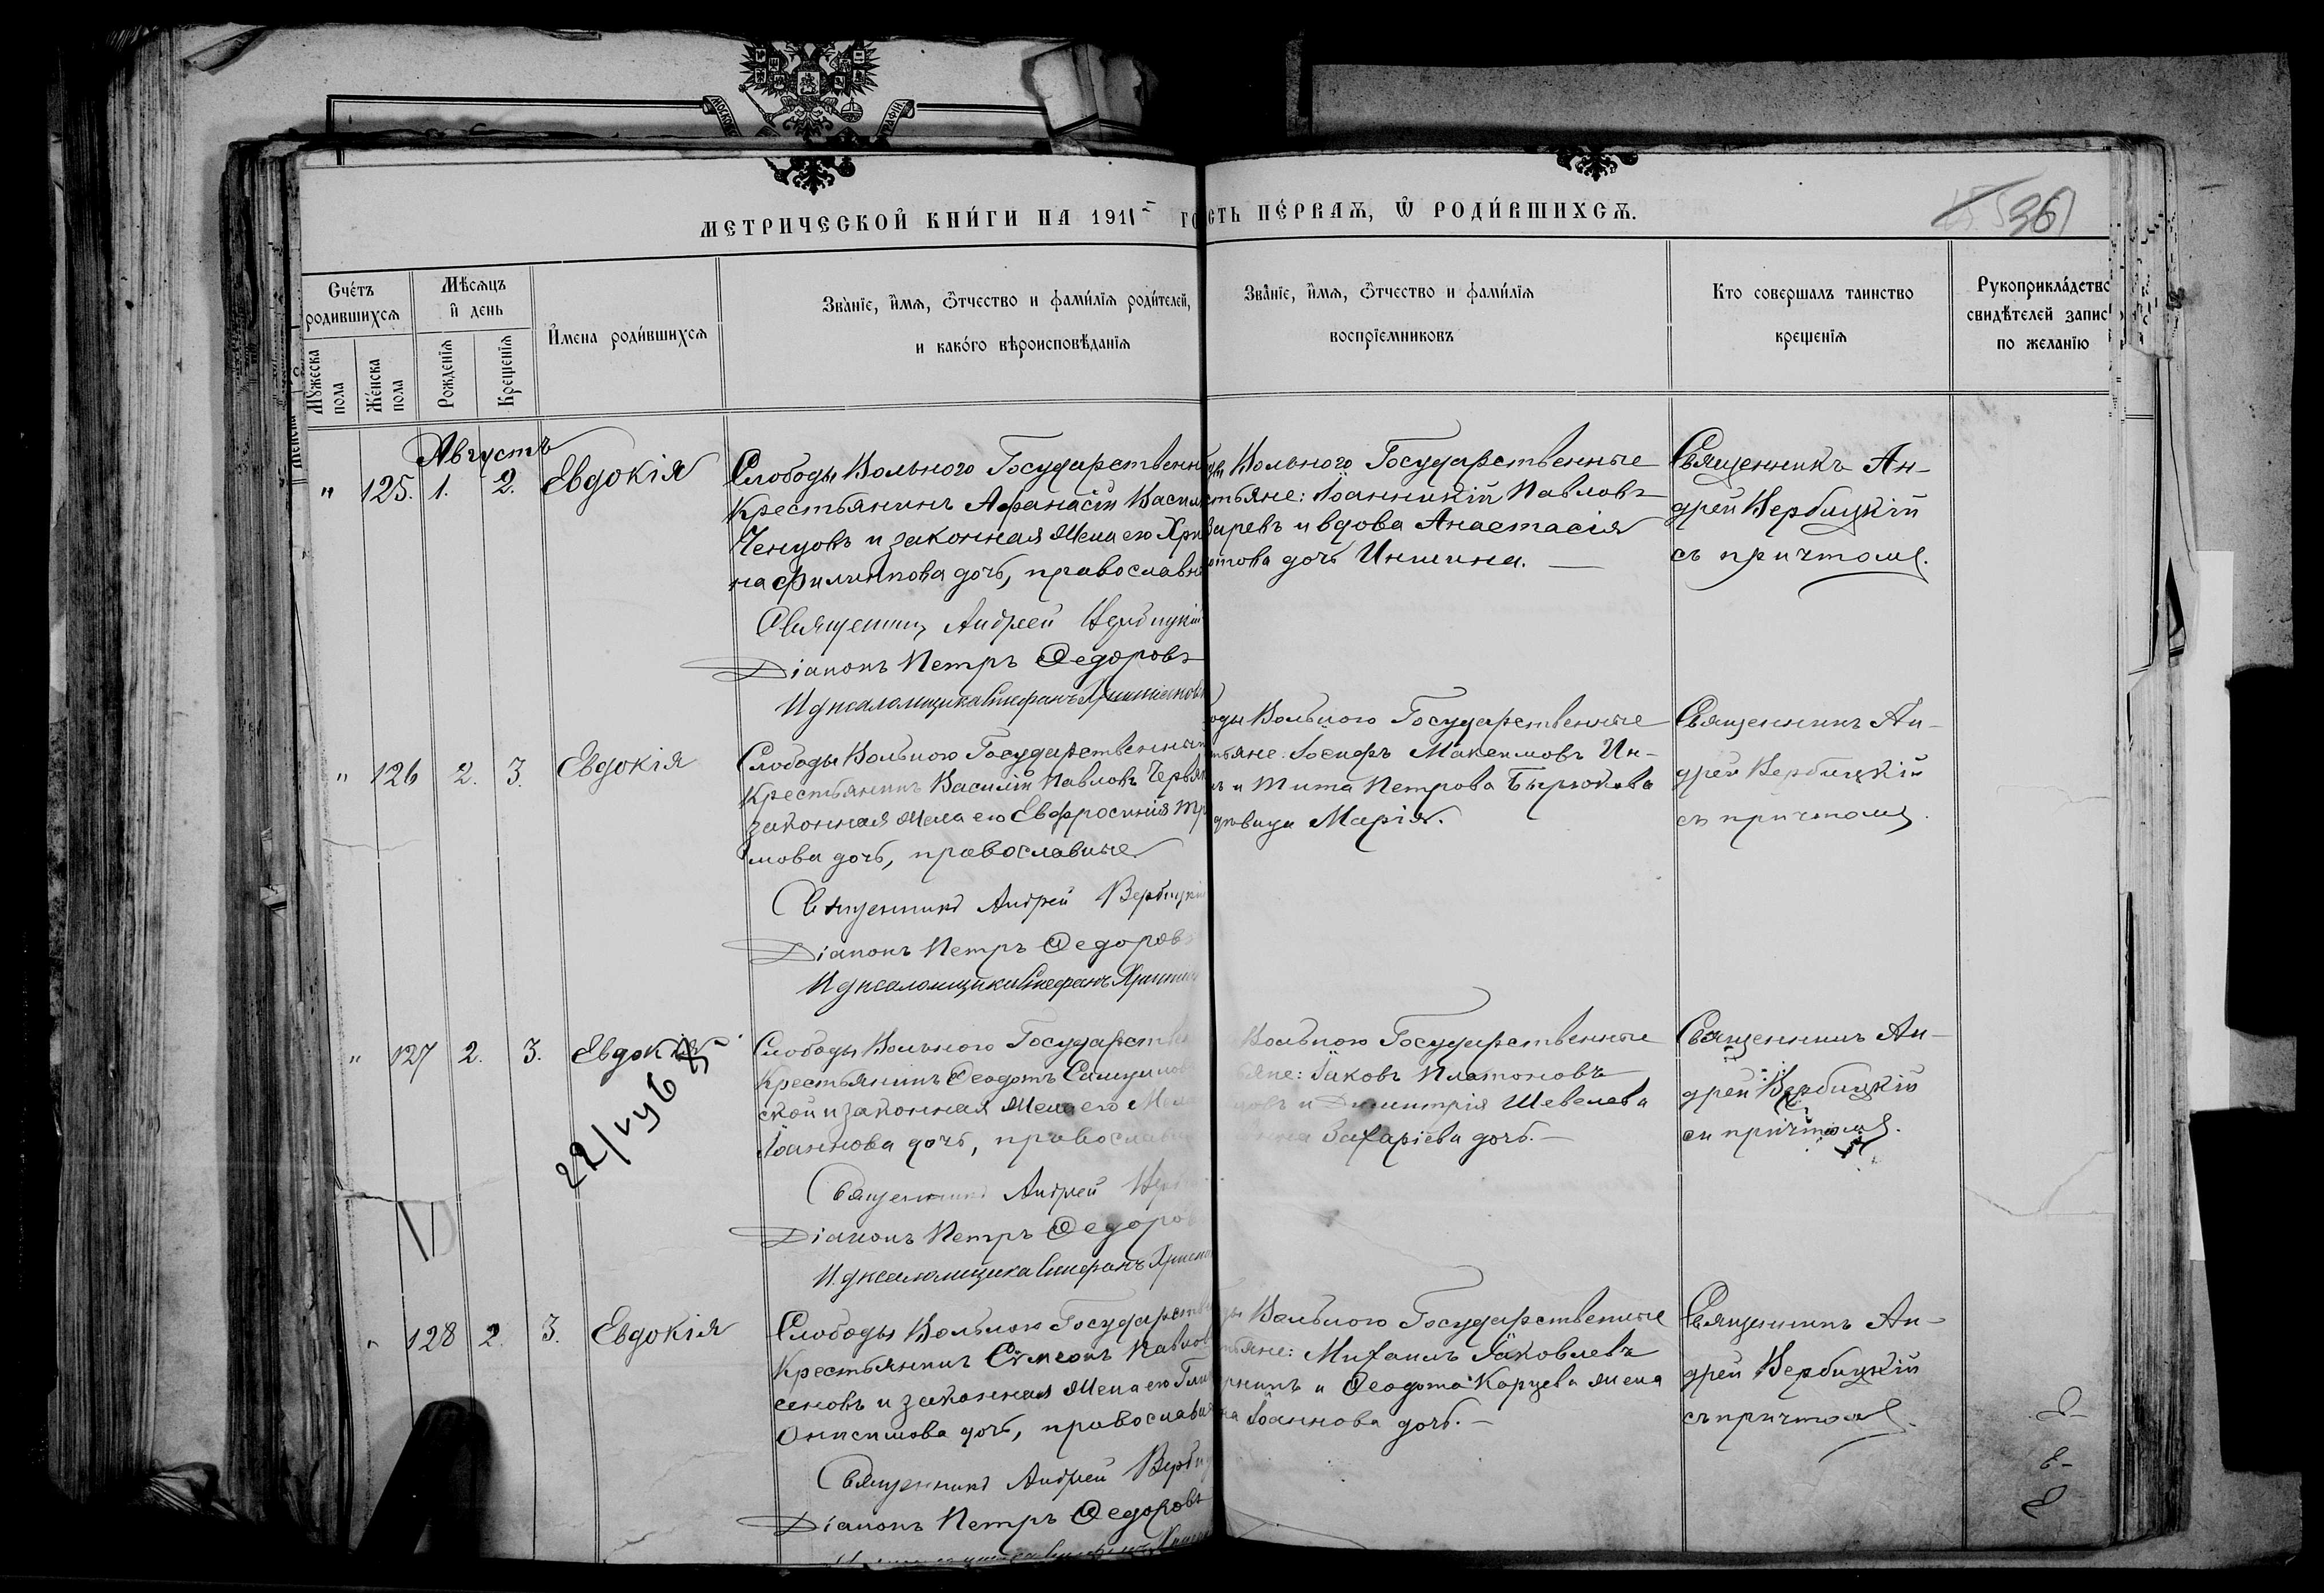 МЕТРИЧЕСКОЙ КНИ́ГИ НА 1911 ГО
СТЬ ПЕ́РВАѦ, Ѿ РОДИ́ВШИХСѦ.
36
Сче́тъ
родившихсѧ
Мꙋжеска
пола
Же́нска
пола
Мѣ́сѧцъ
и день
Рожденїѧ
Крещенїѧ
И҆мена роди́вшихсѧ
Зва́нїе, и҆мѧ, ѻ҆тчество и фами́лїѧ роди́телей,
и како́го вѣроисповѣ́данїѧ
Зва́нїе, и҆мѧ, ѻ҆тчество и фами́лїѧ
воспрїемниковъ
Кто совершалъ таинство
крещенїѧ
Рукоприкла́дство
свидѣ́телей запис
по желанїю
Августъ
" 125. 1. 2. Евдокія
Слободы Вольного Государственн
Крестьянинъ Афанасій Васил
Ченцовъ и законная жена его Хри
на Филиппова дочь, православн
Священникъ Андрей Вербицкій
Діаконъ Петръ Ѳедоровъ
И д псаломщика Стефанъ
Вольного Государственные
стьяне: Іоанникій Павловъ
заревъ и вдова Анастасія
това дочь Иншина.
Священникъ Ан-
дрей Вербицкій
съ причтомъ.
" 126 2. 3. Евдокія
Слободы Вольного Государственный
Крестьянинъ Василій Павловъ Червя
законная жена его Евфросинія Тр
мова дочь, православные
Священникъ Андрей Вербицкій
Діаконъ Петръ Ѳедоровъ
И д псаломщика Стефанъ
оды Вольного Государственные
тьяне: Іосифъ Максимовъ Ин-
ъ и Тита Петрова Бирюкова
девица Марія.
Священникъ Ан-
дрей Вербицкій
съ причтомъ.
" 127 2. 3. Евдокія
Слободы Вольного Государстве
Крестьянинъ Ѳеодотъ
ской и законная жена его
Іоаннова дочь, православн
Священникъ Андрей Верби
Діаконъ Петръ Ѳедоров
И. д псаломщика Стефанъ
Вольного Государственные
ьяне: Іаковъ Платоновъ
овъ и Димитрія Шевелева
Захаріева дочь.
Священникъ Ан-
дрей Вербицкій
съ причтомъ.
" 128 2. 3. Евдокія
Слободы Вольного Государстве
Крестьянинъ Сѵмеонъ Павлов
сеновъ и законная жена его
Онисимова дочь, православн
Священникъ Андрей Верби
Діаконъ Петръ Ѳедоровъ
ды Вольного Государственные
тьяне: Михаилъ Іаковлевъ
и Ѳеодота Карцева жена
на Іоаннова дочь.
Священникъ Ан-
дрей Вербицкій
съ причтомъ.